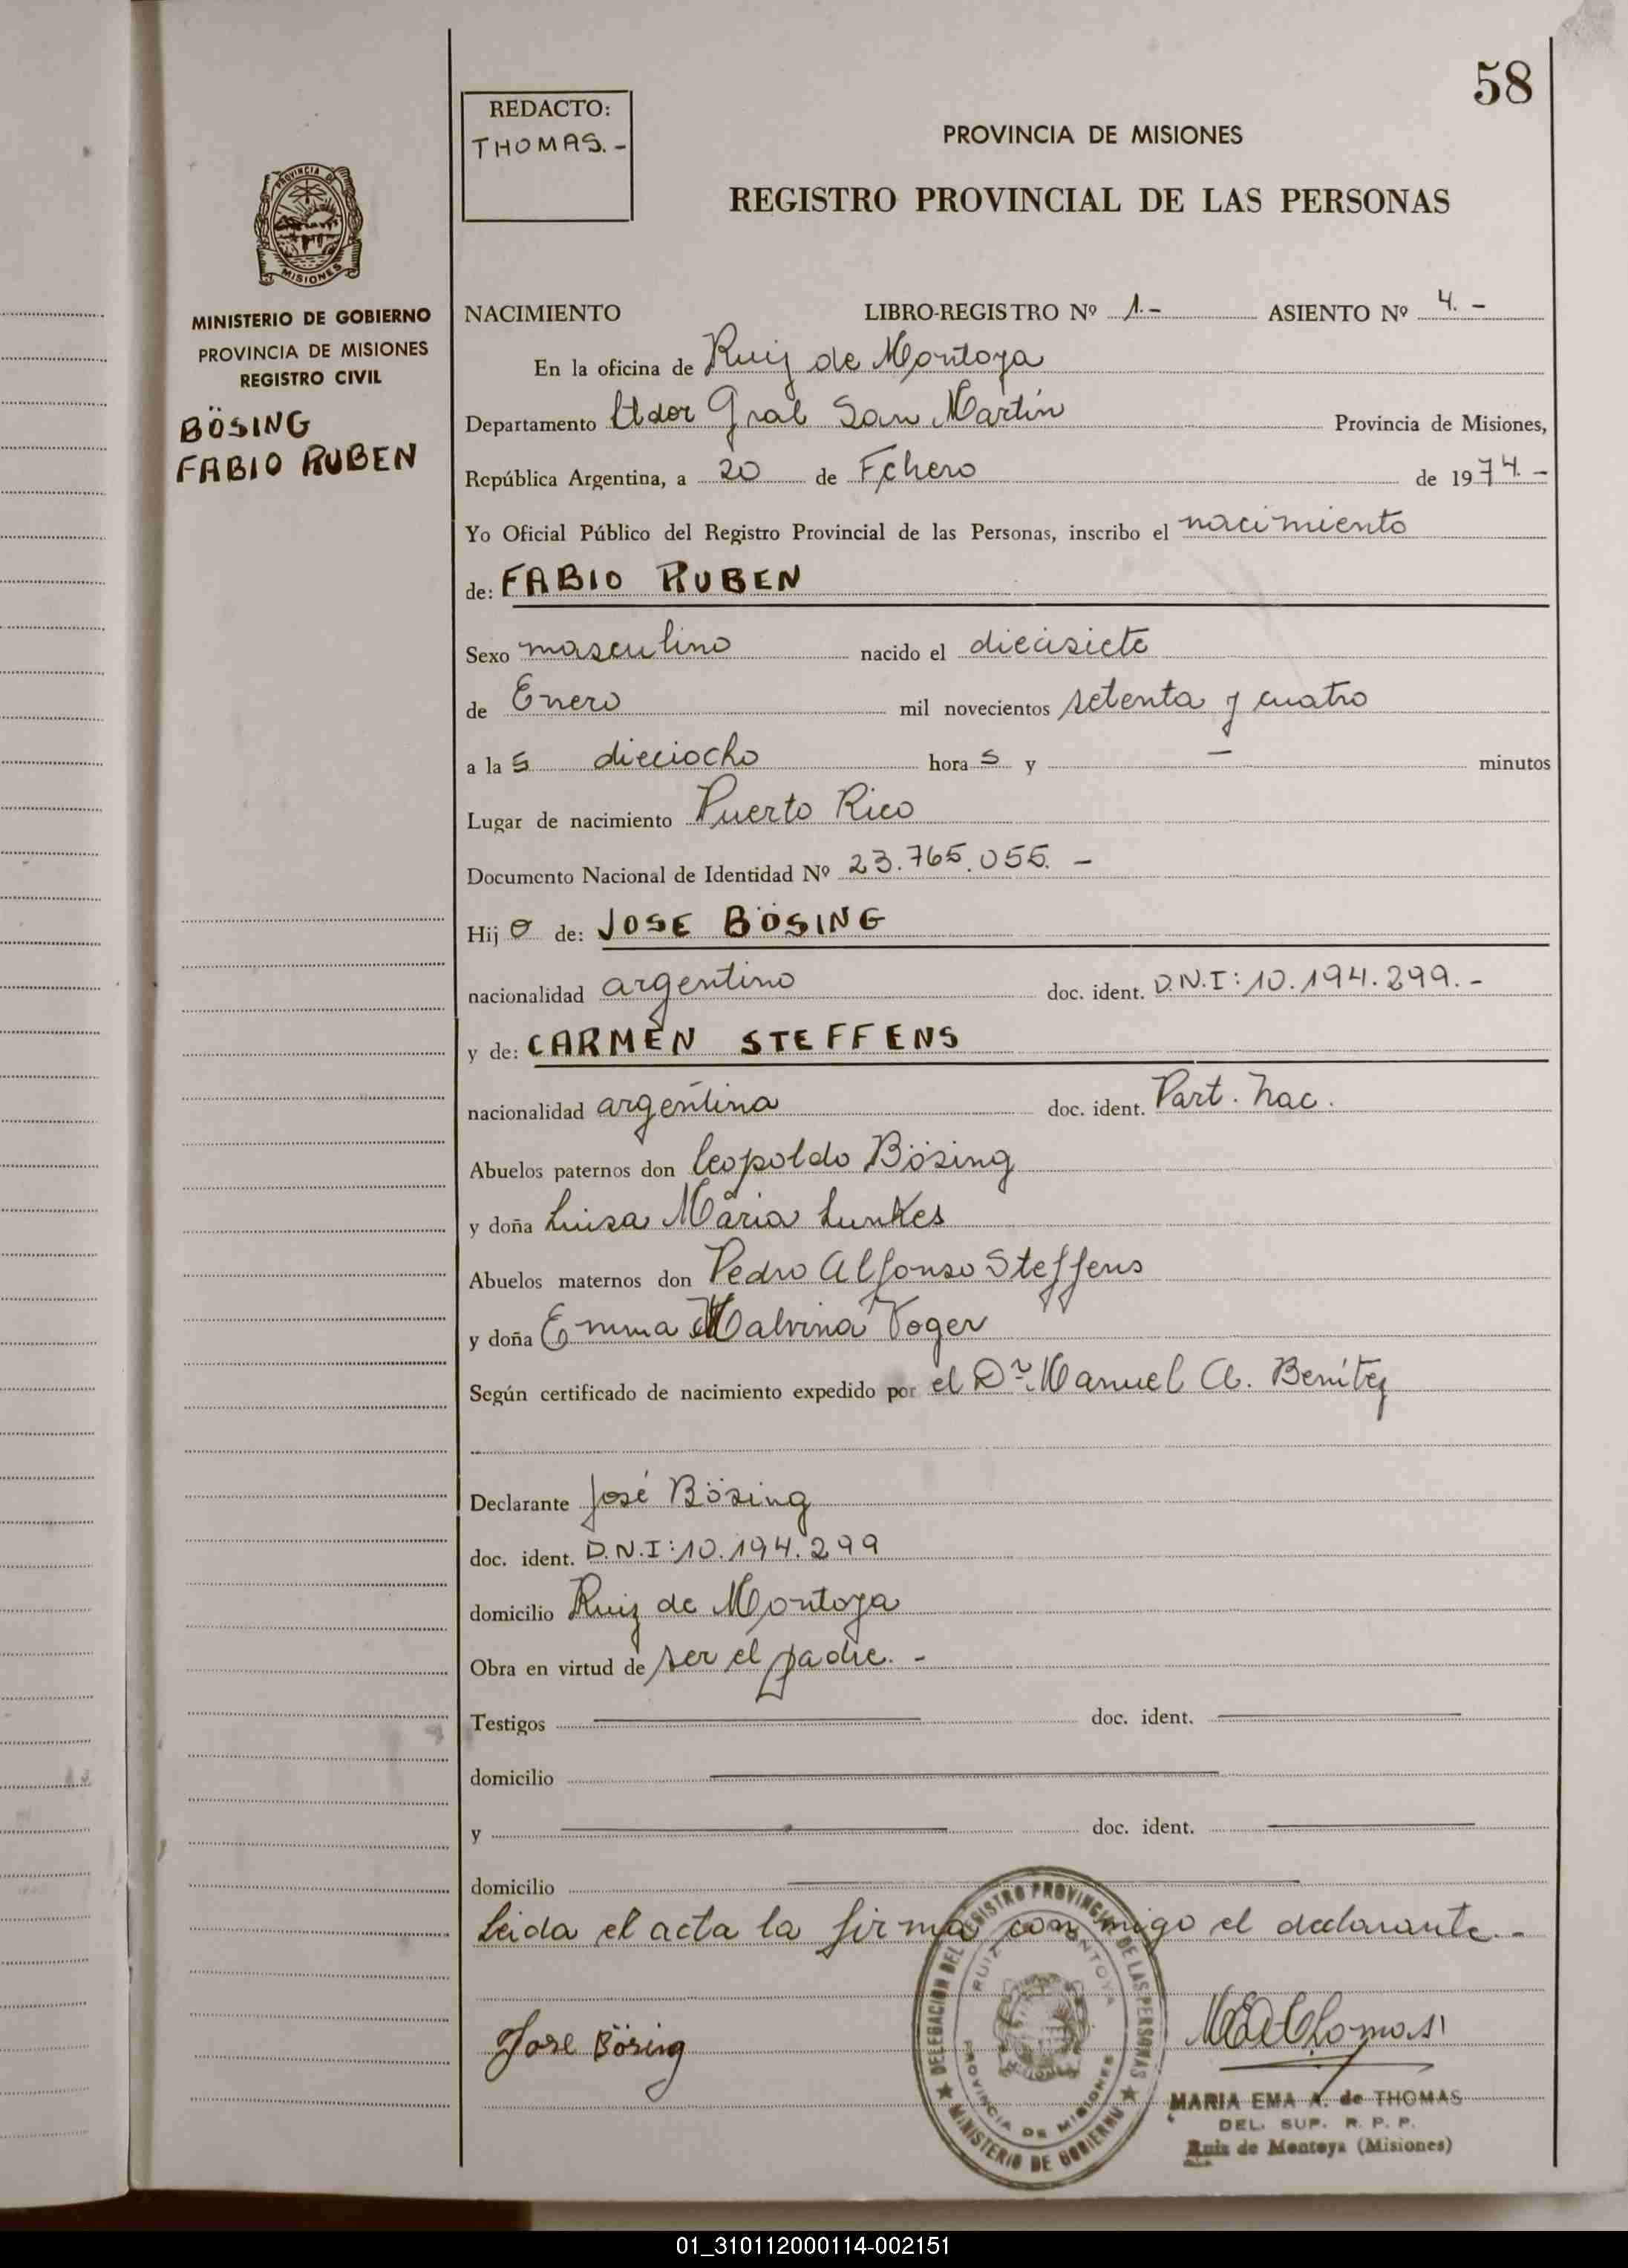 58
REDACTO:
THOMAS. -
PROVINCIA DE MISIONES
REGISTRO PROVINCIAL DE LAS PERSONAS
PROVINCIA DE
MISIONES
MINISTERIO DE GOBIERNO
PROVINCIA DE MISIONES
REGISTRO CIVIL
BÖSING
FABIO RUBEN
NACIMIENTO LIBRO-REGISTRO Nº 1.- ASIENTO Nº 4. -
En la oficina de Ruiz de Montoya
Departamento Ltdor Gral San Martín Provincia de Misiones,
República Argentina, a 20 de Febrero de 1974. -
Yo Oficial Público del Registro Provincial de las Personas, inscribo el nacimiento
de: FABIO RUBEN
Sexo masculino nacido el diecisiete
de Enero mil novecientos setenta y cuatro
a las dieciocho horas y — minutos
Lugar de nacimiento Puerto Rico
Documento Nacional de Identidad Nº 23.765.055. -
Hijo de: JOSE BÖSING
nacionalidad argentino doc. ident. D.N.I: 10.194.299. -
y de: CARMEN STEFFENS
nacionalidad argentina doc. ident. Part. Nac.
Abuelos paternos don Leopoldo Bösing
y doña Luisa María Lunkes
Abuelos maternos don Pedro Alfonso Steffens
y doña Emma Malvina Voger
Según certificado de nacimiento expedido por el Dr. Manuel A. Benítez
Declarante José Bösing
doc. ident. D.N.I: 10.194.299
domicilio Ruiz de Montoya
Obra en virtud de ser el padre. -
Testigos doc. ident.
domicilio
y doc. ident.
domicilio
Leida el acta la firma conmigo el declarante. -
DELEGACION DEL REGISTRO PROVINCIAL DE LAS PERSONAS
RUIZ DE MONTOYA
PROVINCIA DE MISIONES
MINISTERIO DE GOBIERNO
Jose Bösing
MARIA EMA A. de THOMAS
DEL. SUP. R. P. P.
Ruiz de Montoya (Misiones)
01_310112000114-002151